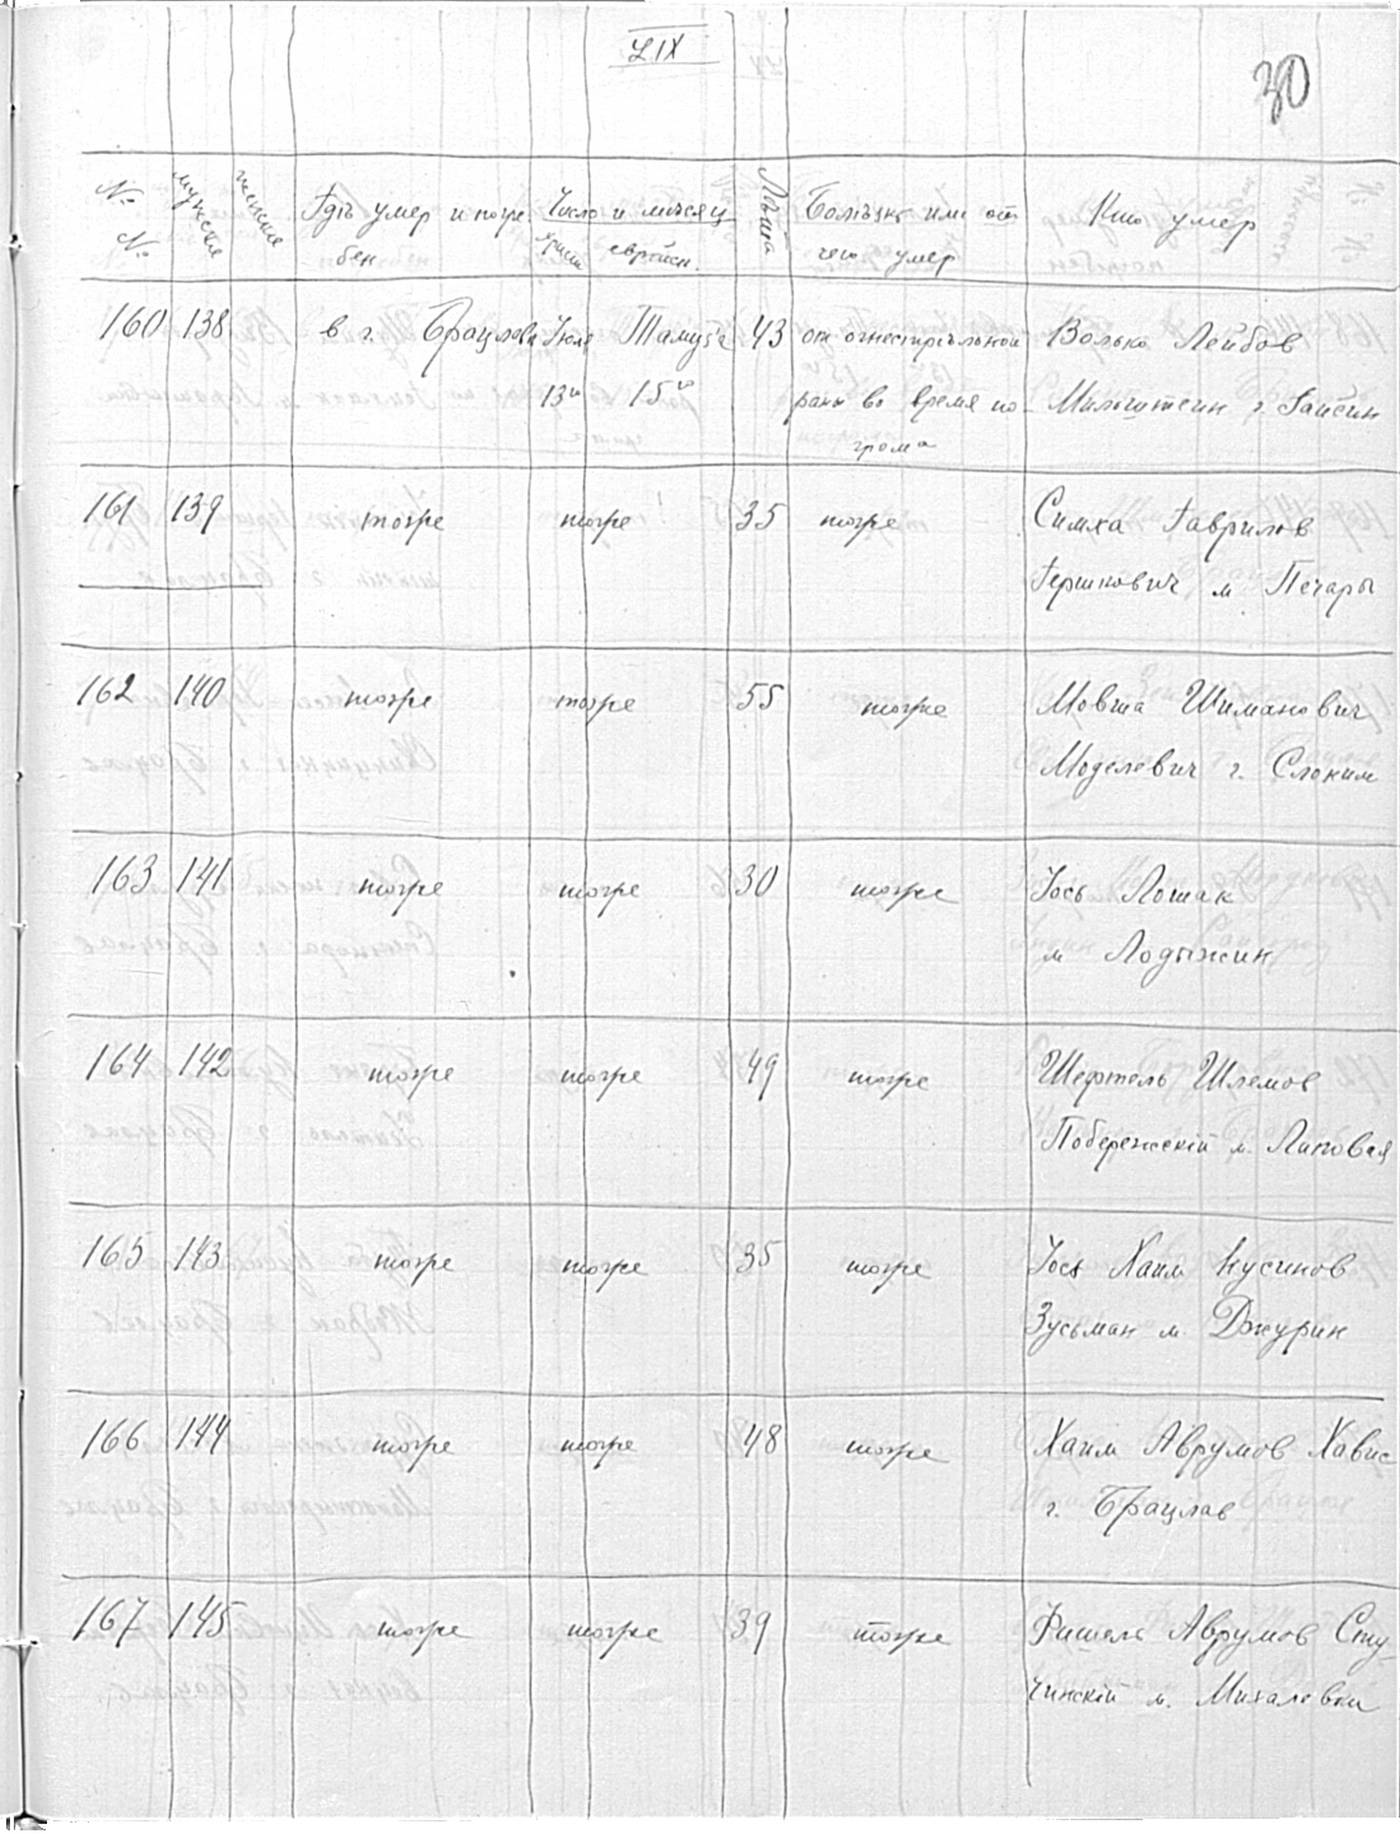 LIX
30
№ №
мужские
женские
Гдѣ умер и погре-
бен
Число и мѣсяц
христ.
еврейск.
Лѣта
Болѣзнь или от
чего умер
Кто умер
160 138 в г. Брацлаве Июля Тамуза 43 от огнестрѣльной Волько Лейбов
13го 15го раны во время по- Мильштеин г. Гайсин
грома
161 139 тоже тоже 35 тоже Симха Гаврилов
Гершкович м Печары
162 140 тоже тоже 55 тоже Мовша Шиманович
Моделевич г. Слоним
163 141 тоже тоже 30 тоже Іось Лошак
м Лодыжин
164 142 тоже тоже 49 тоже Шефтель Шлемов
Побережскій м. Липовая
165 143 тоже тоже 35 тоже Іось Хаим Кусинов
Зусьман м Джурин
166 144 тоже тоже 48 тоже Хаим Аврумов Хавис
г. Брацлав
167 145 тоже тоже 39 тоже Фишель Аврумов Сту-
чинскій м. Михалевки